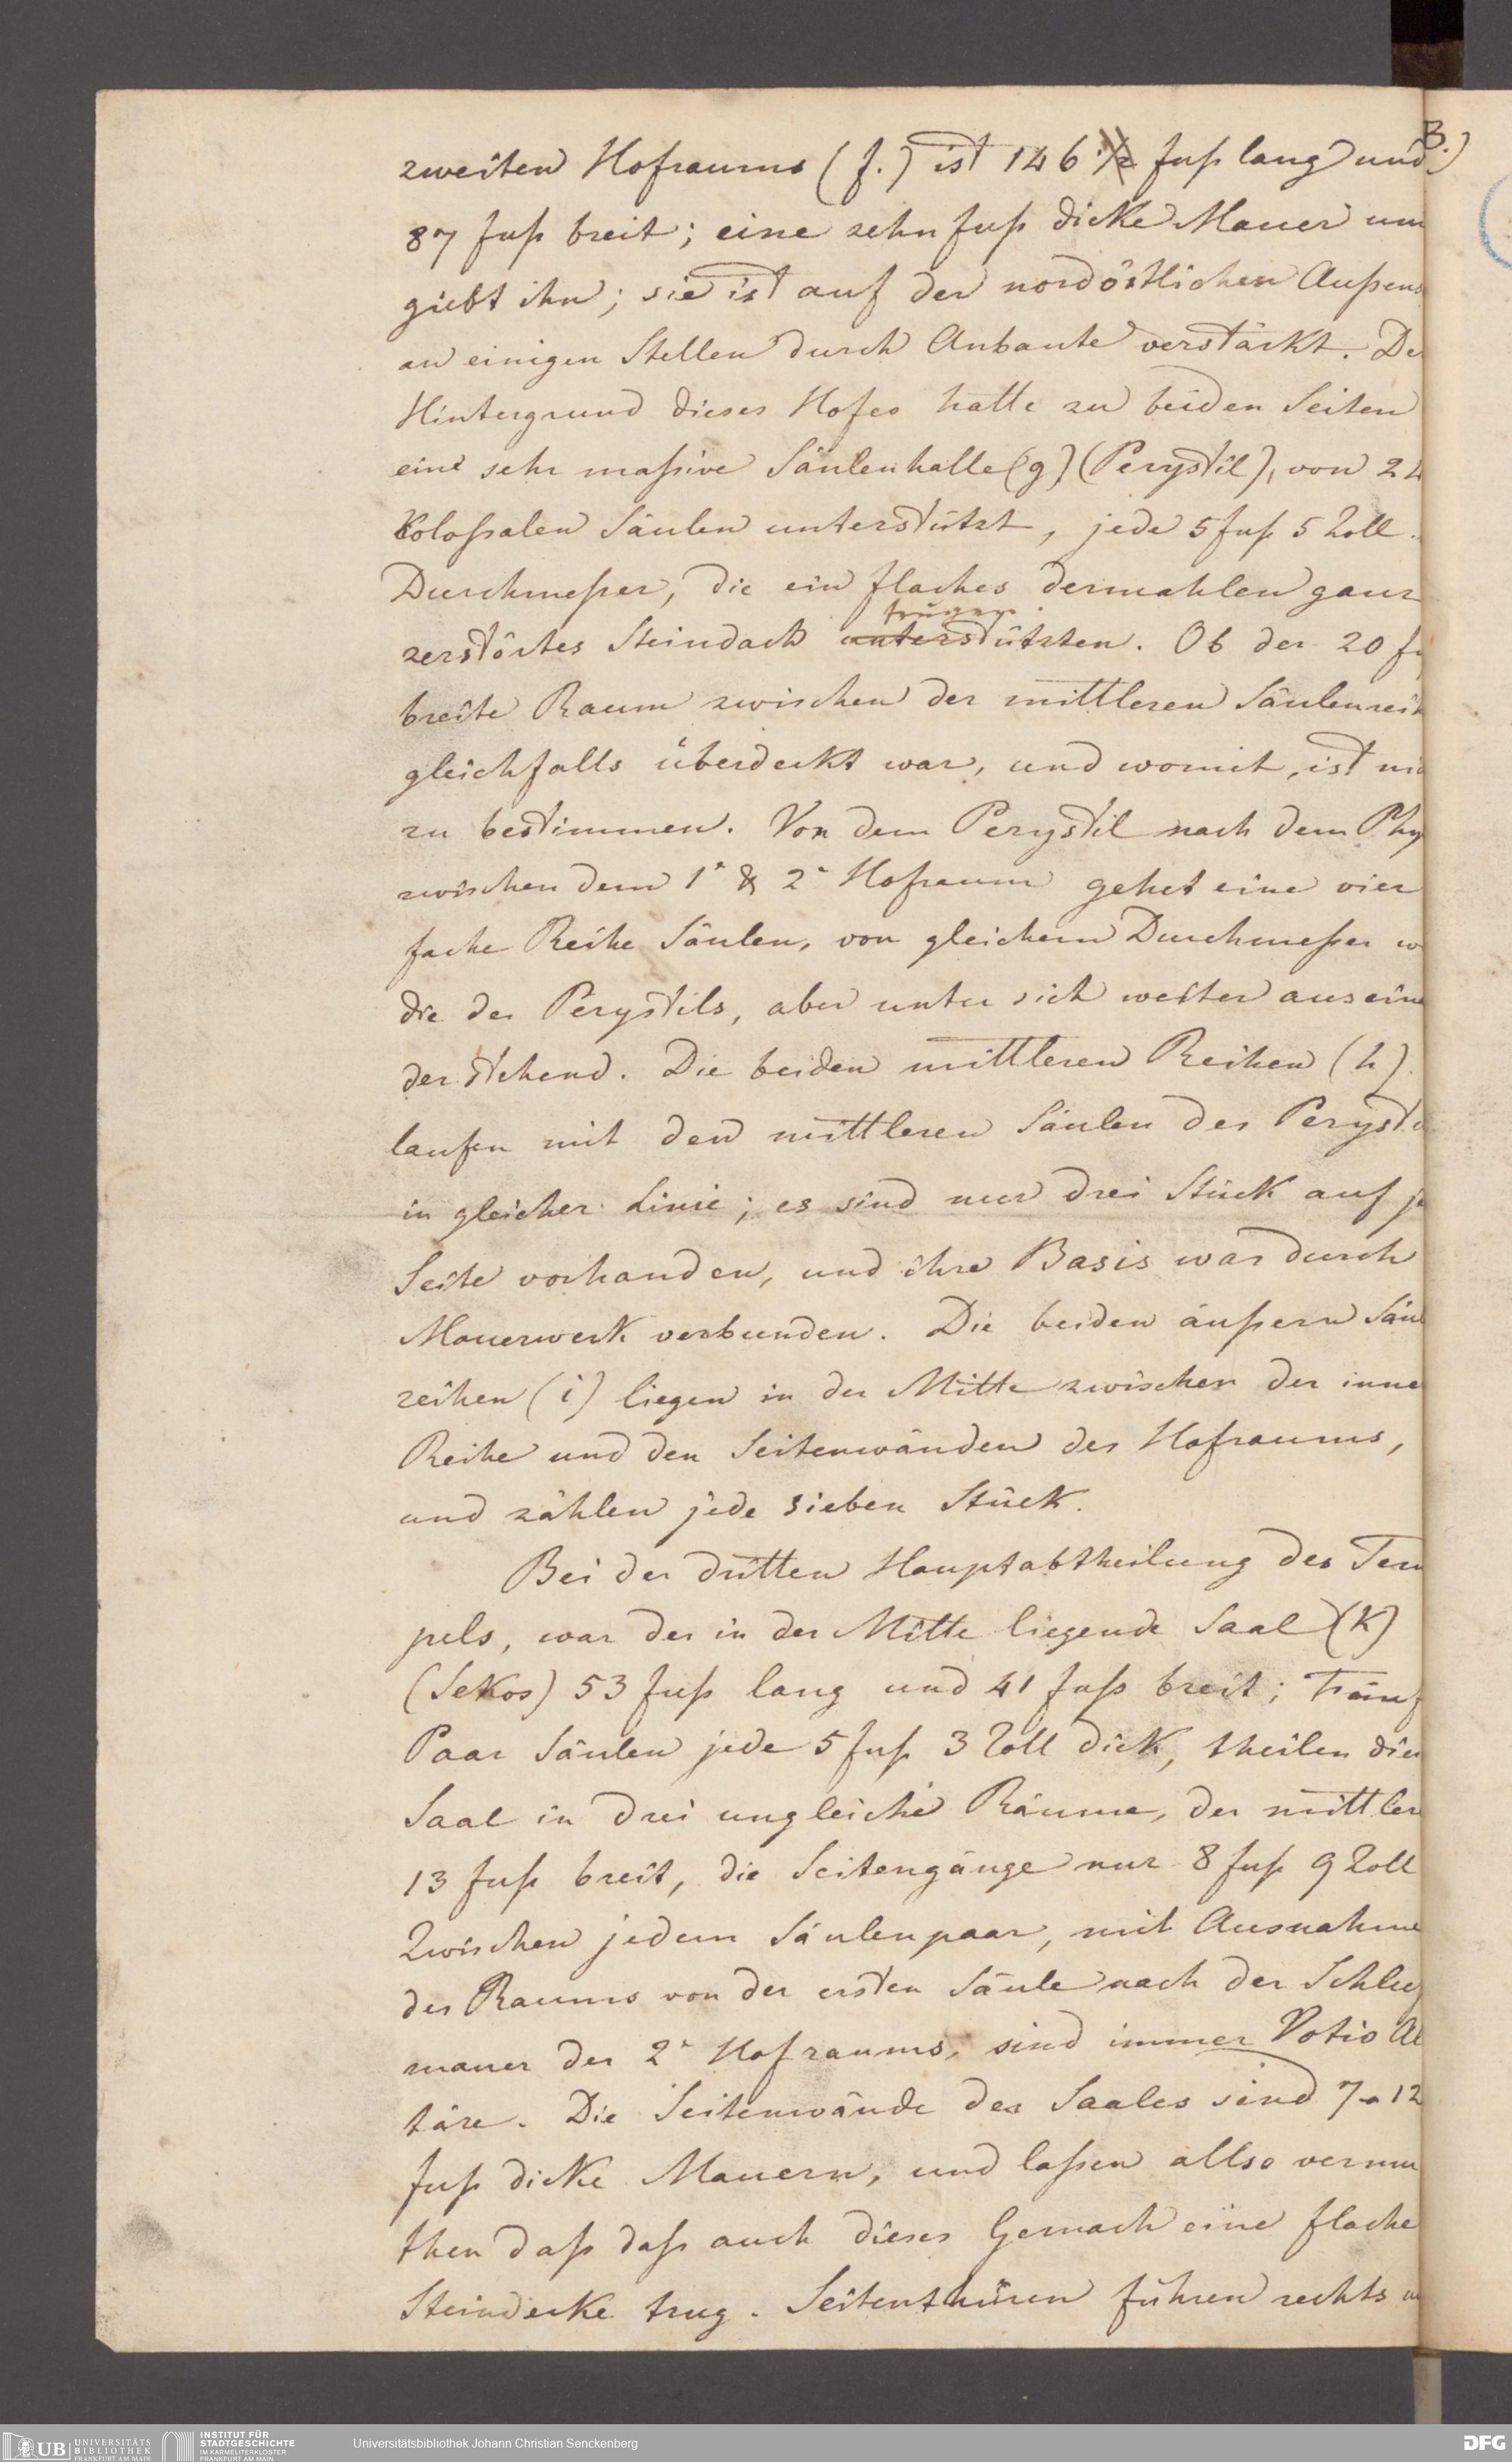 B.)
zweiten Hofraums (f.) ist 146 1/2 fuß lang und
87 fuß breit; eine zehn fuß dicke Mauer um
giebt ihn; sie ist auf der nordöstlichen Außens
an einigen Stellen durch Anbaute verstärkt. De
Hintergrund dieses Hofes hatte zu beiden Seiten
eine sehr maßive Säulenhalle (g) (Perystil), von 24
Kolossalen Säulen unterstützt, jede 5 fuß 5 Zoll
Durchmeßer, die ein flaches dermahlen ganz
trugen
zerstörtes Steindach unterstützten. Ob der 20 fu
breite Raum zwischen der mittleren Säulenreih
gleichfalls überdeckt war, und womit, ist nic
zu bestimmen. Von dem Perystil nach dem Phy
zwischen dem 1n & 2n Hofraum gehet eine vier
fache Reihe Säulen, von gleichem Durchmeßer w
die des Perystils, aber unter sich weiter auseina
der stehend. Die beiden mittleren Reihen (h)
laufen mit den mittleren Säulen des Perysti
in gleicher Linie; es sind nur drei Stück auf je
Seite vorhanden, und ihre Basis war durch
Mauerwerk verbunden. Die beiden äußern Säul
reihen (i) liegen in der Mitte zwischen der inne
Reihe und den Seitenwänden des Hofraums,
und zählen jede sieben Stück.
Bei der dritten Hauptabtheilung des Tem
pels, war der in der Mitte liegende Saal (K)
(Sekos) 53 fuß lang und 41 fuß breit;
Paar Säulen jede 5 fuß 3 Zoll dick, theilen dies
Saal in drei ungleiche Räume, der mittlere
13 fuß breit, die Seitengänge nur 8 fuß 9 Zoll
Zwischen jedem Säulenpaar, mit Ausnahme
des Raums von der ersten Säule nach der Schluß
mauer des 2n Hofraums, sind immer Votiv Al
täre. Die Seitenwände des Saales sind 7 a 12
fuß dicke Mauern, und laßen allso vermu
then daß daß auch dieses Gemach eine flache
Steindecke trug. Seitenthüren führen rechts u
UB UNIVERSITÄTS BIBLIOTHEK FRANKFURT AM MAIN
INSTITUT FÜR STADTGESCHICHTE IM KARMELITERKLOSTER FRANKFURT AM MAIN
Universitätsbibliothek Johann Christian Senckenberg
DFG